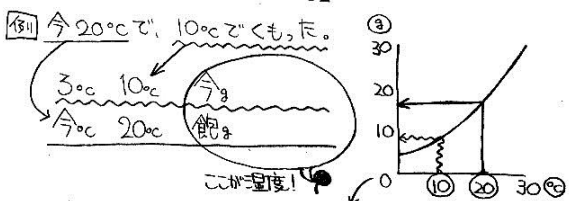 例 今20℃で、10℃でくもった。
3℃ 10℃ 今g
今℃ 20℃ 飽g
ここが湿度!
g
30
20
10
0
10 20 30 ℃